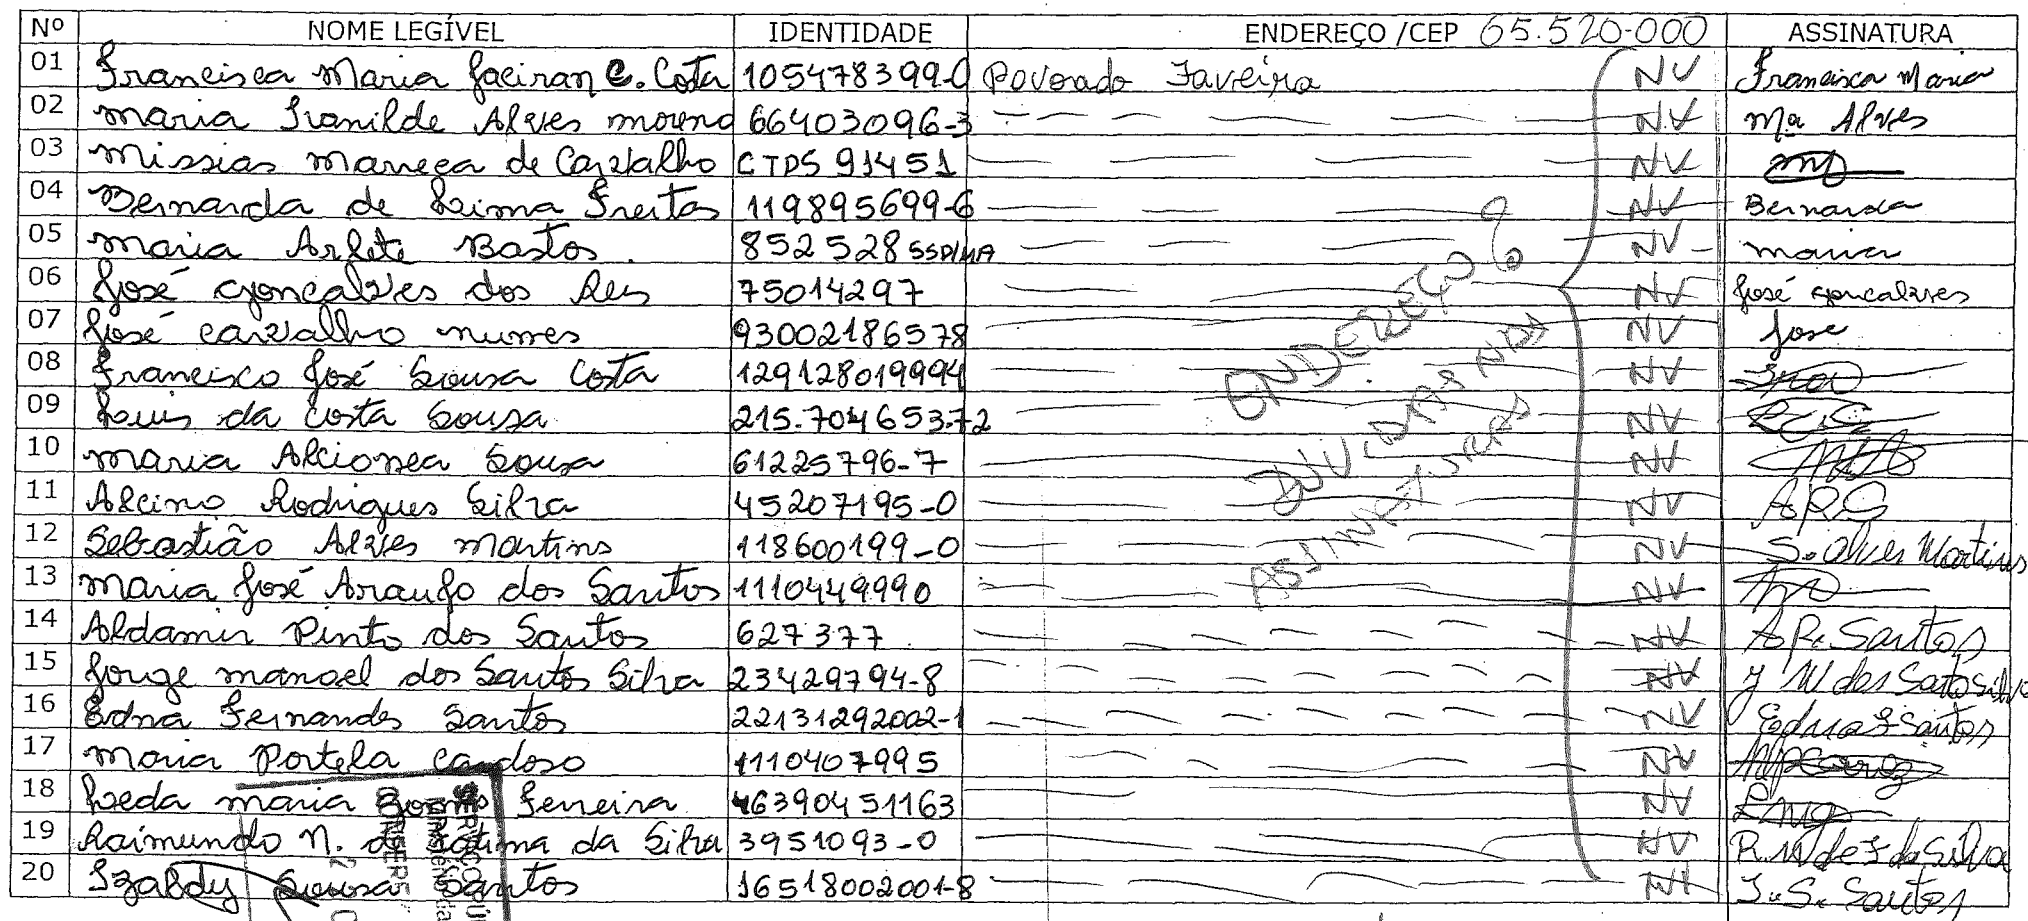 Nº NOME LEGÍVEL IDENTIDADE ENDEREÇO /CEP 65.520-000 ASSINATURA
01 Francisca Maria Jaciran C. Costa 105478399-0 Povoado Taveira NV Francisca Maria
02 Maria Ivanilde Alves moreno 66403096-3 NV Ma Alves
03 missias de Carvalho CTPS 91451 NV
04 Bernarda de Lima Freitas 119895699-6 NV Bernarda
05 maria Arlete Bastos 852528 SSP/MA NV maria
06 José gonçalves dos Reis 75014297 NV José goncalves
07 José carvalho nunes 93002186578 NV José
08 Francisco José Sousa Costa 129128019994 NV
09 Luis da Costa Sousa 215.704653-72 NV
10 maria Alcionea Sousa 61225796-7 NV
11 Alcino Rodrigues Silva 45207195-0 NV ARS
12 Sebastião Alves Martins 118600199-0 NV S. Alves Martins
13 maria José Araujo dos Santos 1110449990 NV
14 Aldamir Pinto dos Santos 627377 NV A P. Santos
15 Jorge manoel dos Santos Silva 23429794-8 NV J M dos Santos Silva
16 Edna Fernandes Santos 22131292002-1 NV Edna F Santos
17 maria Portela Cardoso 1110407995 NV
18 Leda maria Gomes Ferreira 46390451163 NV
19 Raimundo N. de Fatima da Silva 3951093-0 NV R. N de F da Silva
20 Izaldy Sousa Santos 16518002001-8 NV I. S. Santos
ENDEREÇO ?
DUVIDAS NAS
ASSINATURAS